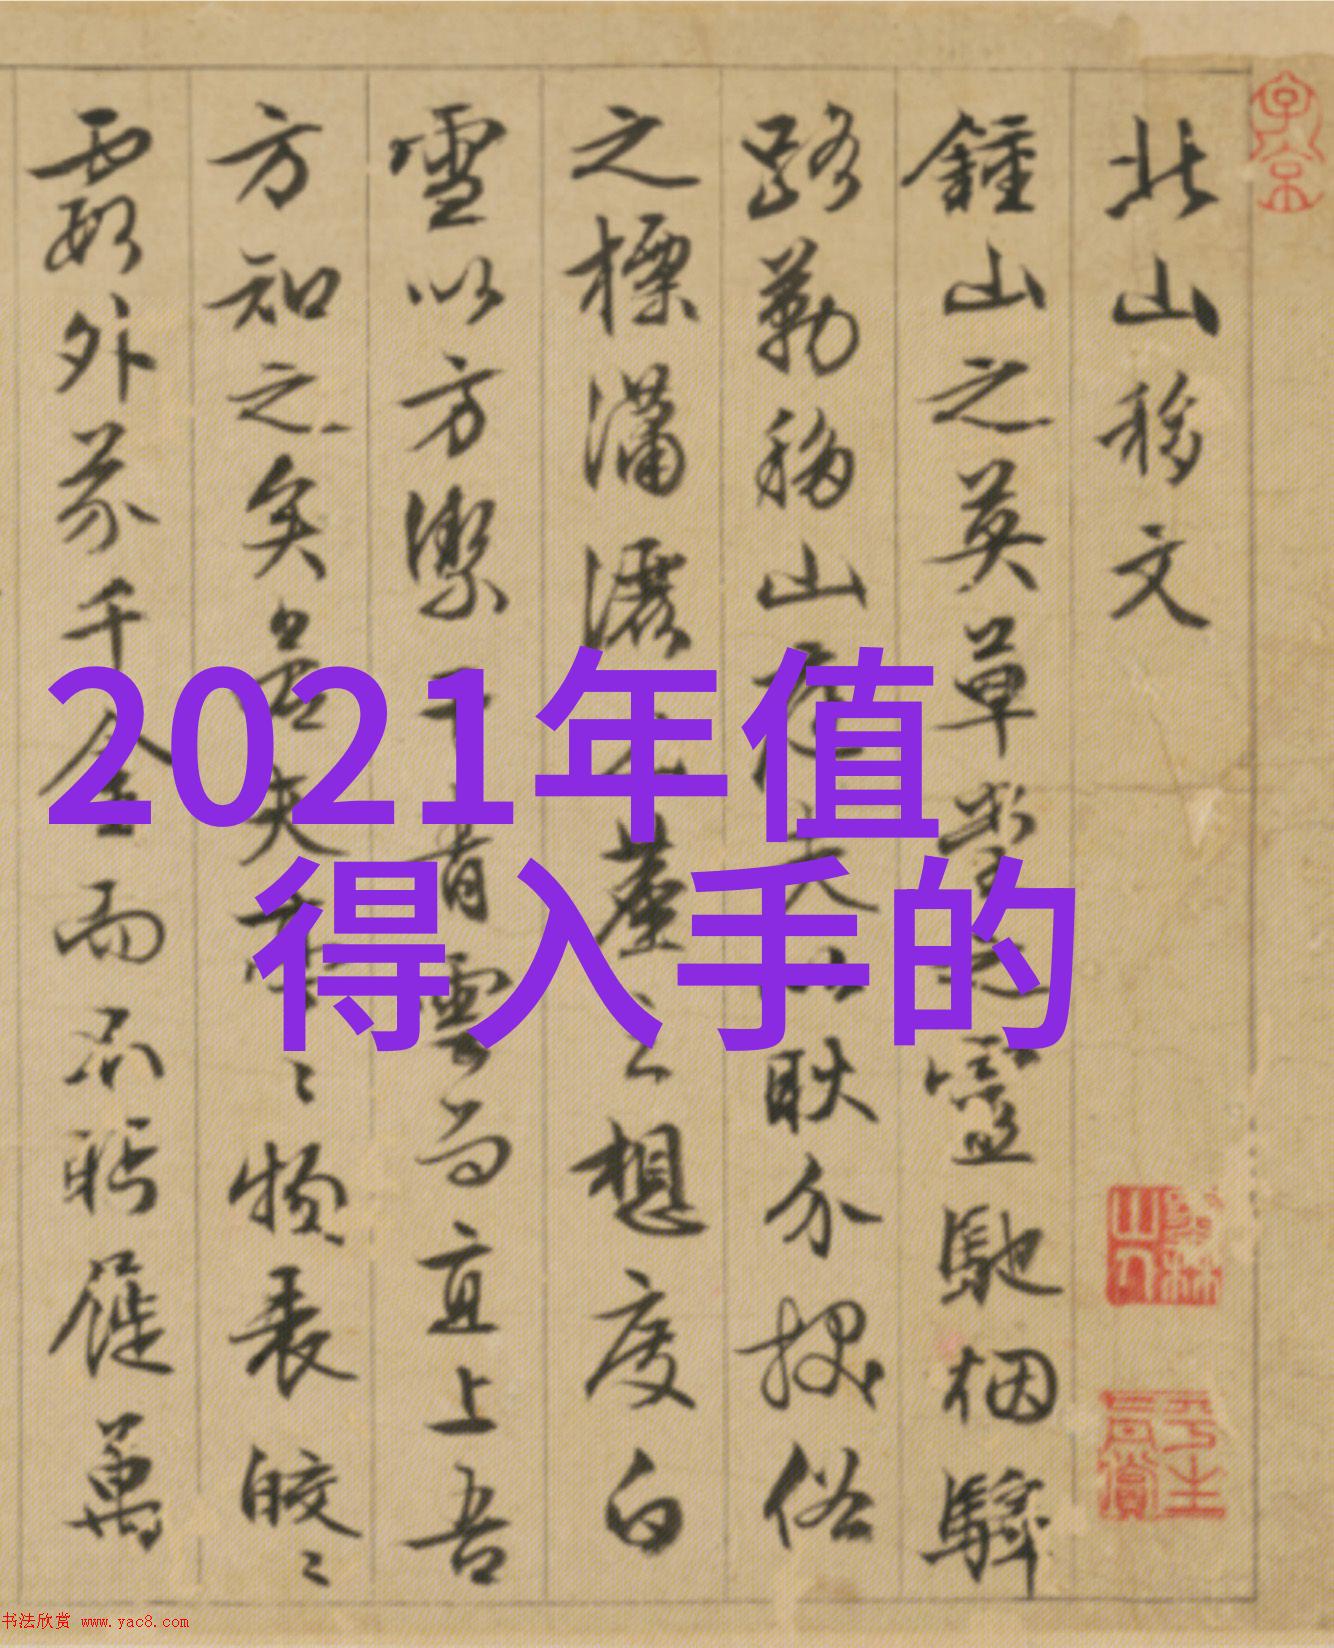 北山移文
鍾山之英草堂之靈馳煙驛
路勒移山庭夫以耿介拔俗
之標瀟灑出塵之想度白
雪以方潔干青雲而直上吾
方知之矣若其亭亭物表皎皎
霞外芥千金而不眄屣萬
2021年值
得入手的
书法欣赏 www.yac8.com